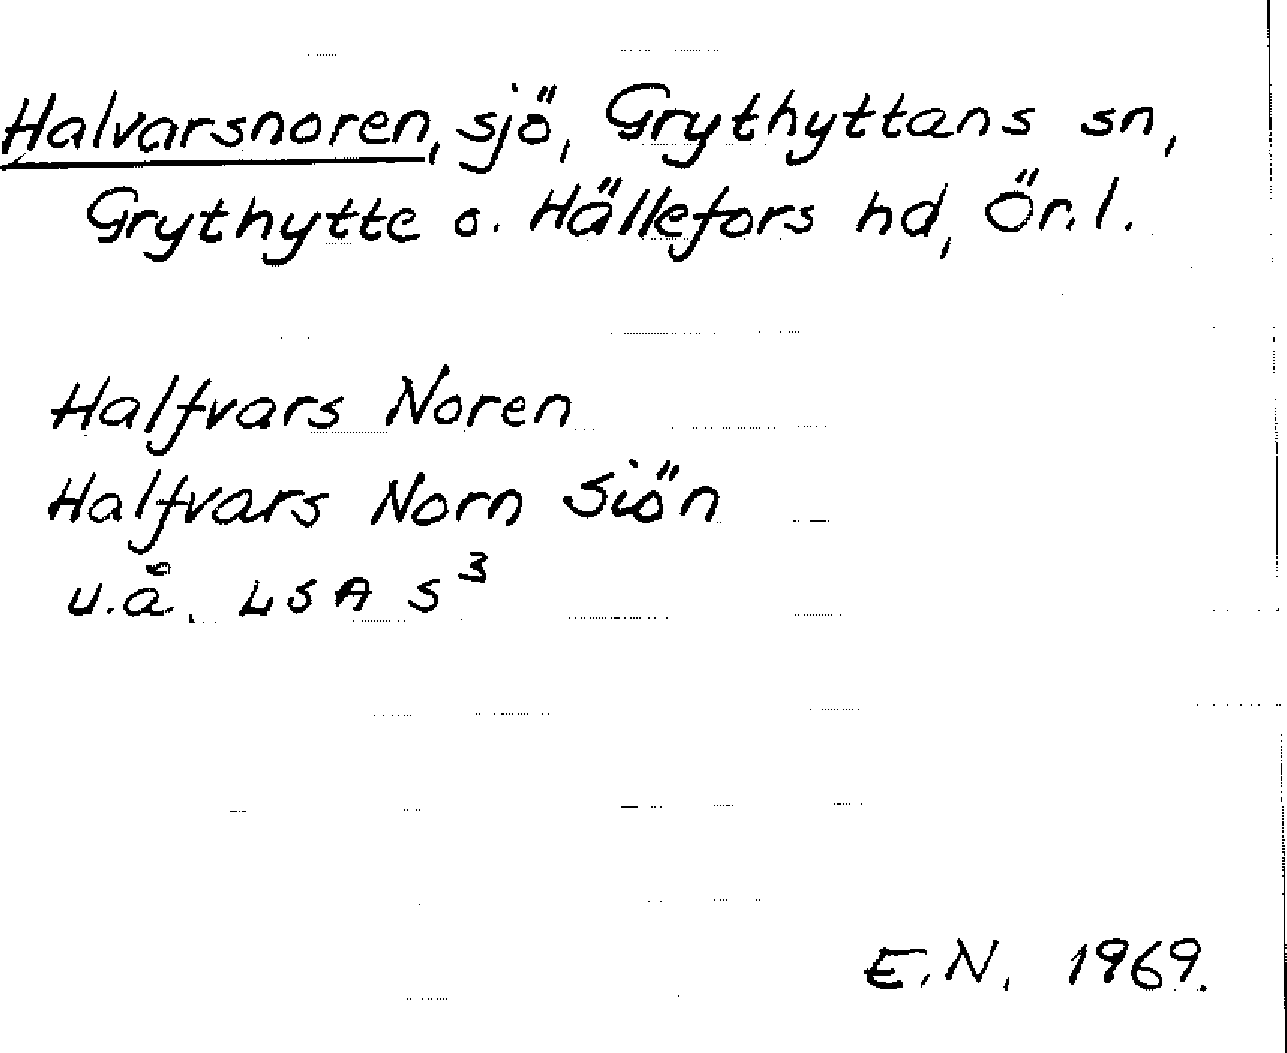 Halvarsnoren, sjö, Grythyttans sn,
Grythytte o. Hällefors hd, Ör.l.
Halfvars Noren
Halfvars Norn Siön
u.å. LSA S³
E.N. 1969.